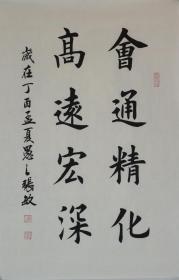 會通精化
高遠宏深
歲在丁酉孟夏愚之張敏